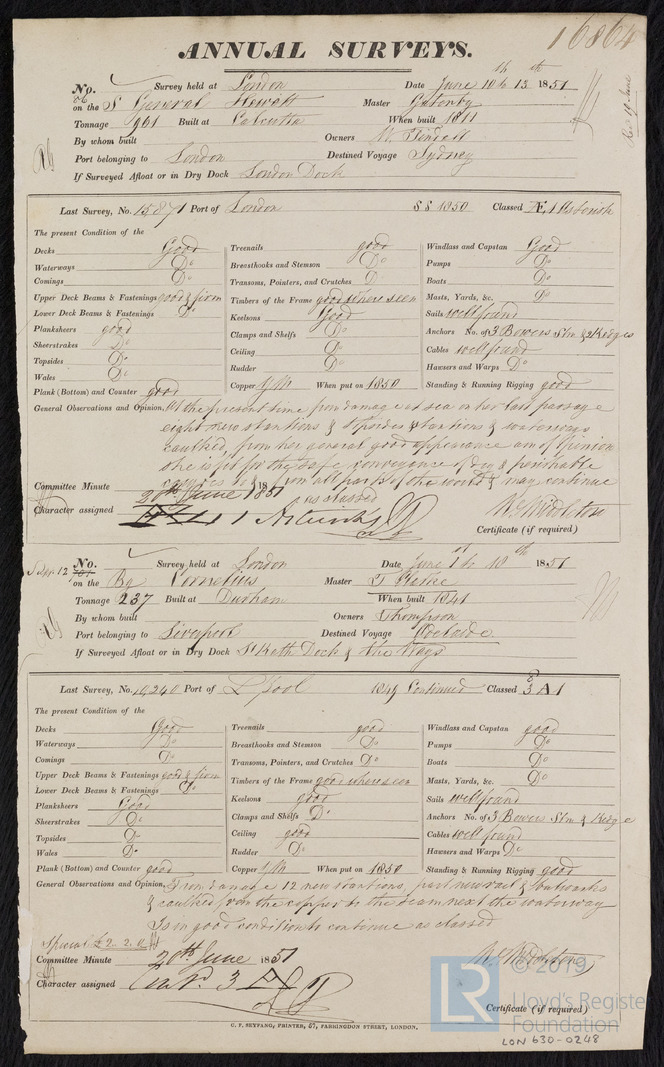 16864
ANNUAL SURVEYS.
No. Survey held at London Date June 10 & 13th 1851
on the S General Hewitt Master Gatenby
Tonnage 961 Built at Calcutta When built 1811
By whom built Owners W. Tindall
Port belonging to London Destined Voyage Sydney
If Surveyed Afloat or in Dry Dock London Dock
Last Survey, No. 15871 Port of London SS 1850 Classed Æ1
The present Condition of the
Decks Good Treenails good Windlass and Capstan Good
Waterways Do Breasthooks and Stemson Do Pumps Do
Comings Do Transoms, Pointers, and Crutches D Boats Do
Upper Deck Beams & Fastenings good & firm Timbers of the Frame good where seen Masts, Yards, &c. Do
Lower Deck Beams & Fastenings Do Keelsons Good Sails well found
Planksheers good Clamps and Shelfs Do Anchors No. of 3 Bowers Stm & 2 Kedges
Sheerstrakes Do Ceiling Do Cables well found
Topsides Do Rudder Do Hawsers and Warps Do
Wales Do Copper Y/M When put on 1850 Standing & Running Rigging good
Plank (Bottom) and Counter good
General Observations and Opinion, At the present time from damage at sea on her last passage
eight new stantions & Topsides & stantions & waterways
caulked, from her general good appearance am of Opinion
she is fit for the safe conveyance of dry & perishable
cargoes to & from all parts of the world & may continue
as classed
Committee Minute 20th June 1851
Character assigned Æ 1
W Middleton
Certificate (if required)
No. Survey held at London Date June 1st & 10th 1851
on the Bg Cornelius Master
Tonnage 237 Built at Durham When built 1841
By whom built Owners Thompson
Port belonging to Liverpool Destined Voyage Adelaide
If Surveyed Afloat or in Dry Dock St Kath Dock & the Ways
Last Survey, No. 10,240 Port of L'pool 1849 Continued Classed 3 A 1
The present Condition of the
Decks Good Treenails good Windlass and Capstan good
Waterways Do Breasthooks and Stemson Do Pumps Do
Comings Do Transoms, Pointers, and Crutches Do Boats Do
Upper Deck Beams & Fastenings good & firm Timbers of the Frame good where seen Masts, Yards, &c. Do
Lower Deck Beams & Fastenings Do Keelsons good Sails well found
Planksheers Good Clamps and Shelfs Do Anchors No. of 3 Bowers Stm & Kedge
Sheerstrakes Do Ceiling good Cables well found
Topsides Do Rudder Do Hawsers and Warps Do
Wales Do Copper Y/M When put on 1850 Standing & Running Rigging good
Plank (Bottom) and Counter good
General Observations and Opinion, From damage 12 new stantions, part new rail & bulwarks
& caulked from the copper to the seam next the waterway
Is in good condition to continue as classed
Special £2.2.0
Committee Minute 20th June 1851
Character assigned Contd. 3 A 1
W Middleton
Certificate (if required)
C. F. SEYFANG, PRINTER, 57, FARRINGDON STREET, LONDON.
LR © 2019
Lloyd's Register
Foundation
LON 630-0248